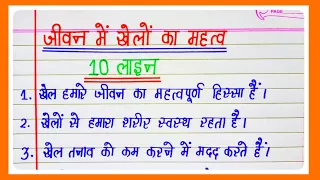 PAGE
जीवन में खेलों का महत्व
10 लाइन
1. खेल हमारे जीवन का महत्वपूर्ण हिस्सा हैं।
2. खेलों से हमारा शरीर स्वस्थ रहता है।
3. खेल तनाव को कम करने में मदद करते हैं।